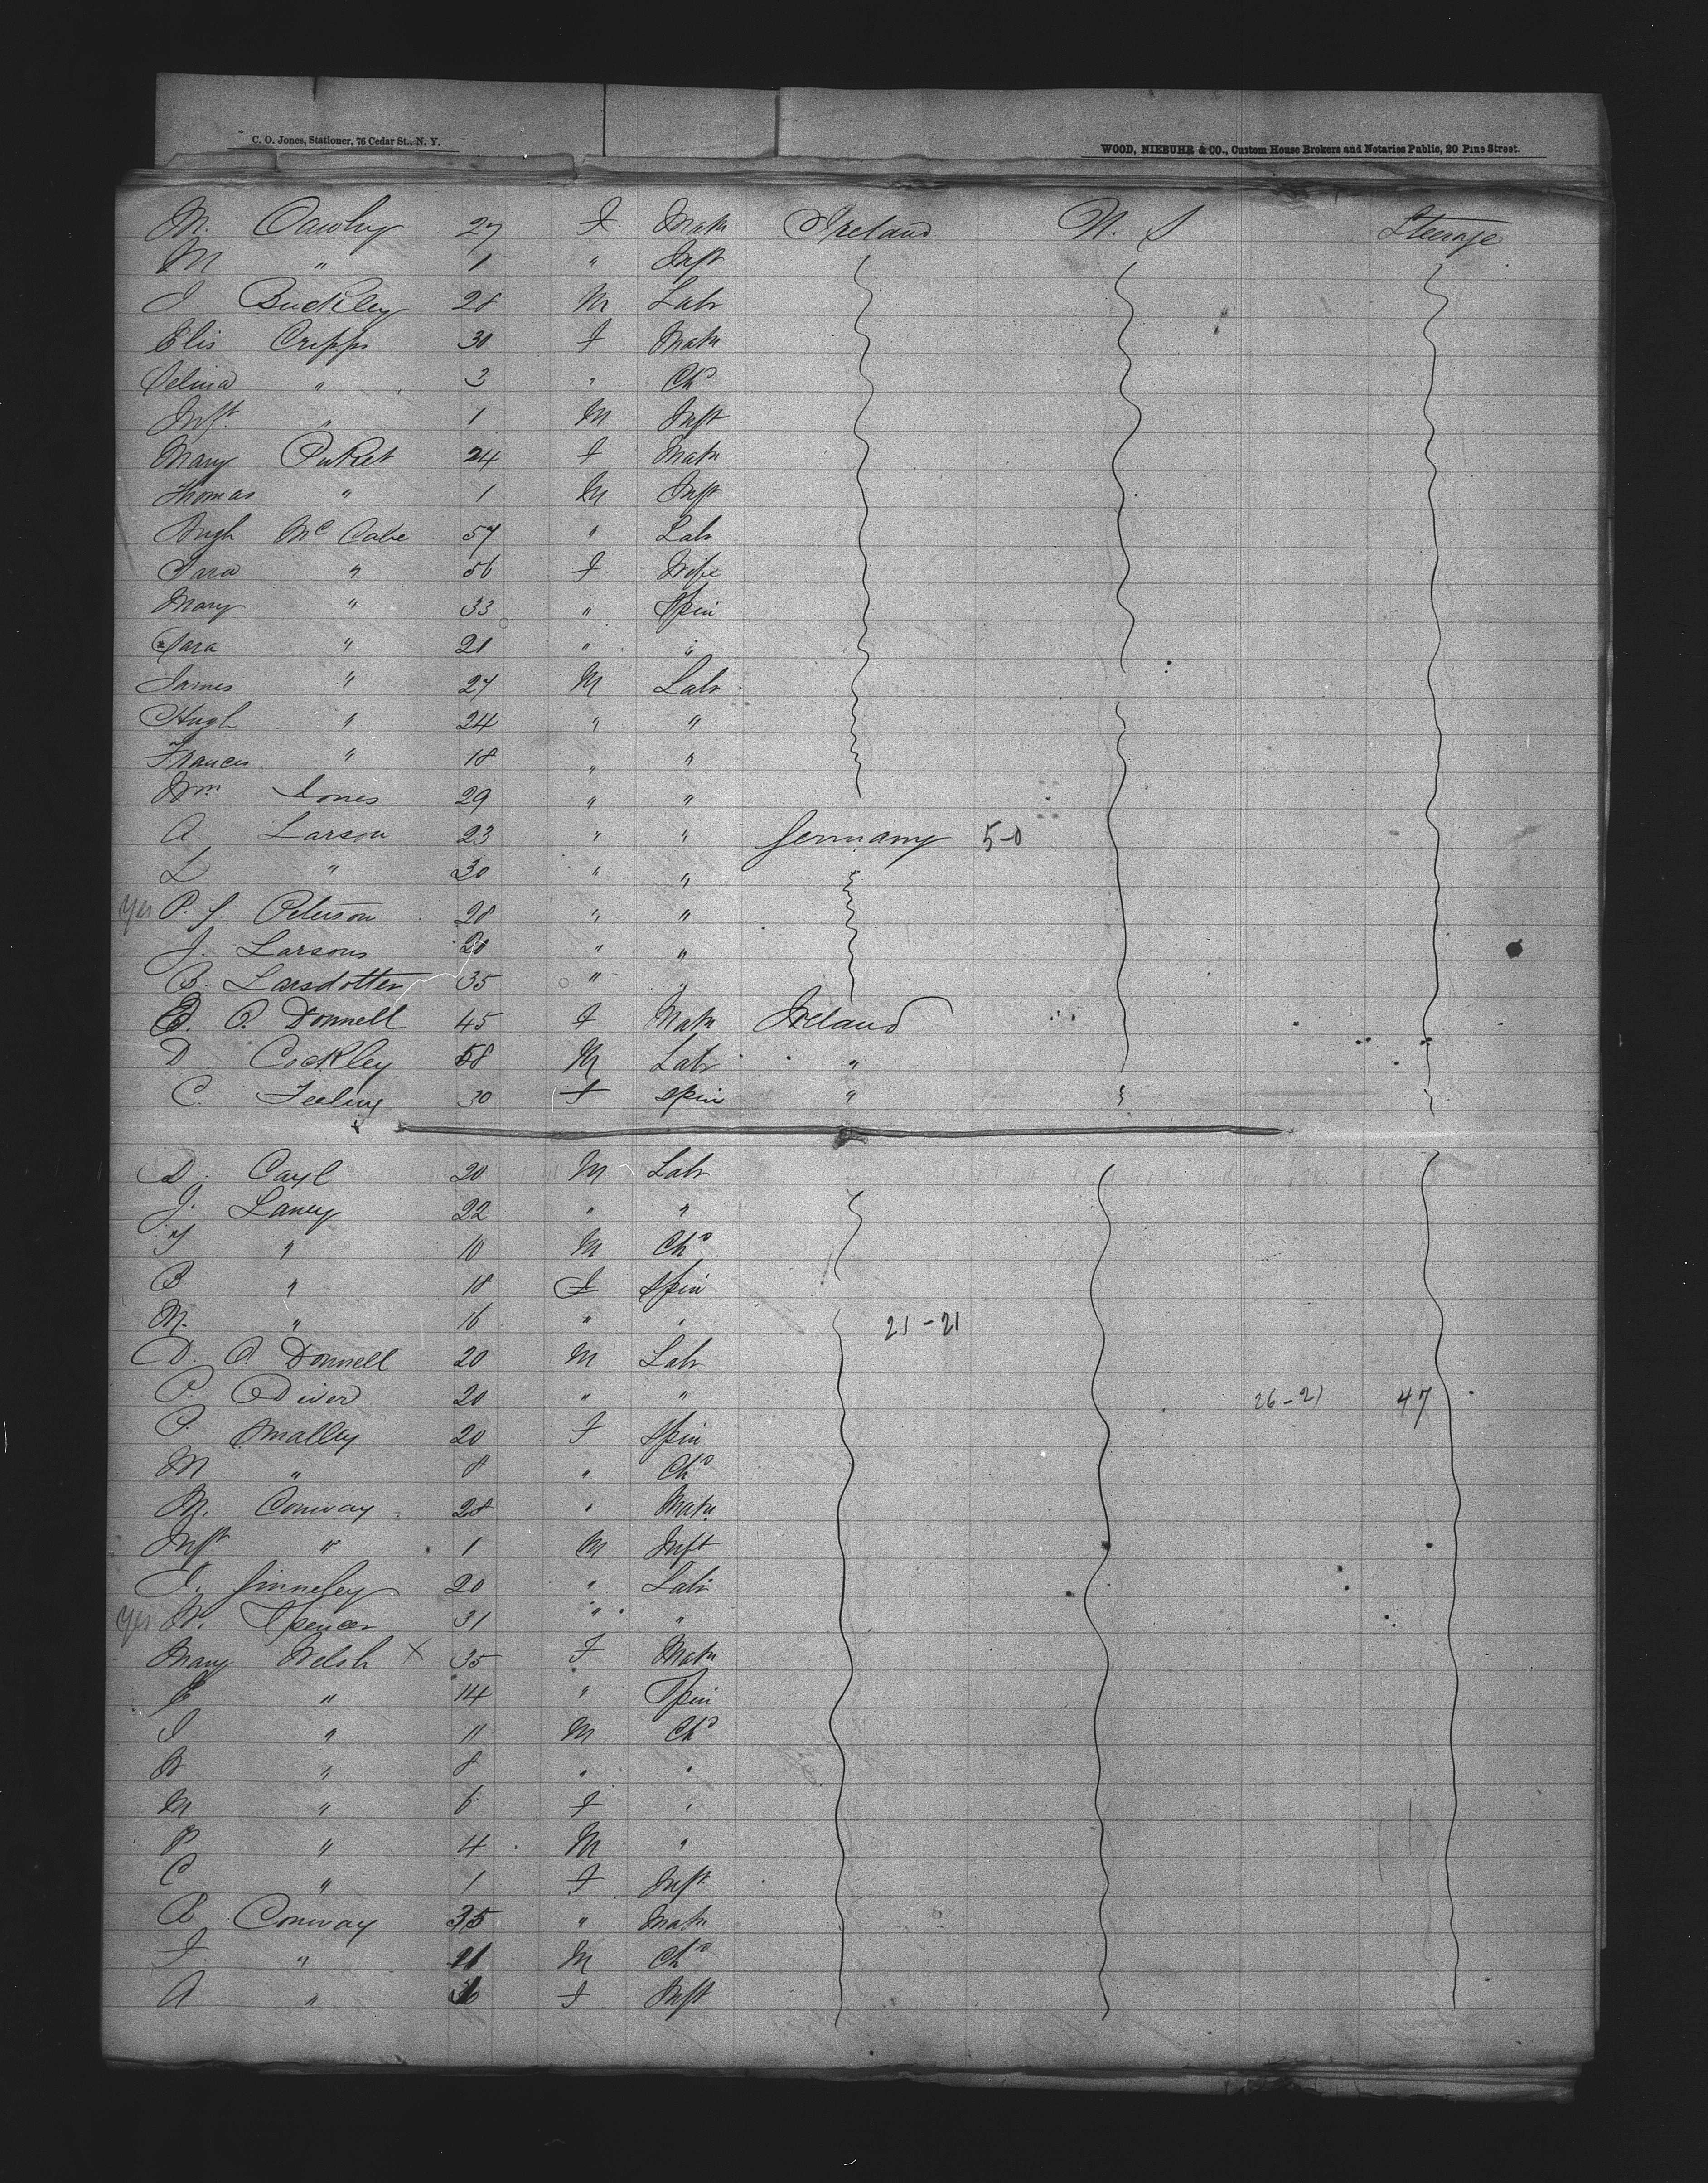 C. O. Jones, Stationer, 76 Cedar St., N. Y.
WOOD, NIEBUHR & CO., Custom House Brokers and Notaries Public, 20 Pine Street.
M. Cawley 27 F Matr Ireland U. S Steerage
M " 1 " Inft
J Buckley 28 M Labr
Elis Cripps 30 F Matr
Selina " 3 " Chd
Inft " 1 M Inft
Mary 24 F Matr
Thomas " 1 M Inft
Hugh McCabe 57 " Labr
Sara " 56 F Wife
Mary " 33 " Spin
Sara " 21 " "
James " 27 M Labr
Hugh " 24 " "
Frances " 18 " "
Wm Jones 29 " "
A Larson 23 " " Germany 5-0
L " 30 " "
yes P. J. Peterson 28 " "
J. Larsons 20 " "
B. Larsdotter 35 " "
O. Donnell 45 F Matr Ireland
D Cockley 58 M Labr "
C. Feeling 30 F Spin "
D. Cayl 20 M Labr
J. Laney 22 " "
T " 10 M Chd
B " 18 F Spin
M. " 16 " " 21-21
D. O. Donnell 20 M Labr
P. O Diver 20 " " 26-21 47
P. Smalley 20 F Spin
M " 8 " Chd
M. Conway 28 " Matr
Inft " 1 M Inft
J. Ginneley 20 " Labr
yes W. Spencer 31 " "
Mary Welsh X 35 F Matr
E " 14 " Spin
J " 11 M Chd
" 8 " "
M " 6 F "
P " 4 M "
C " 1 F Inft
B Conway 35 " Matr
F " M Chd
A " F Inft